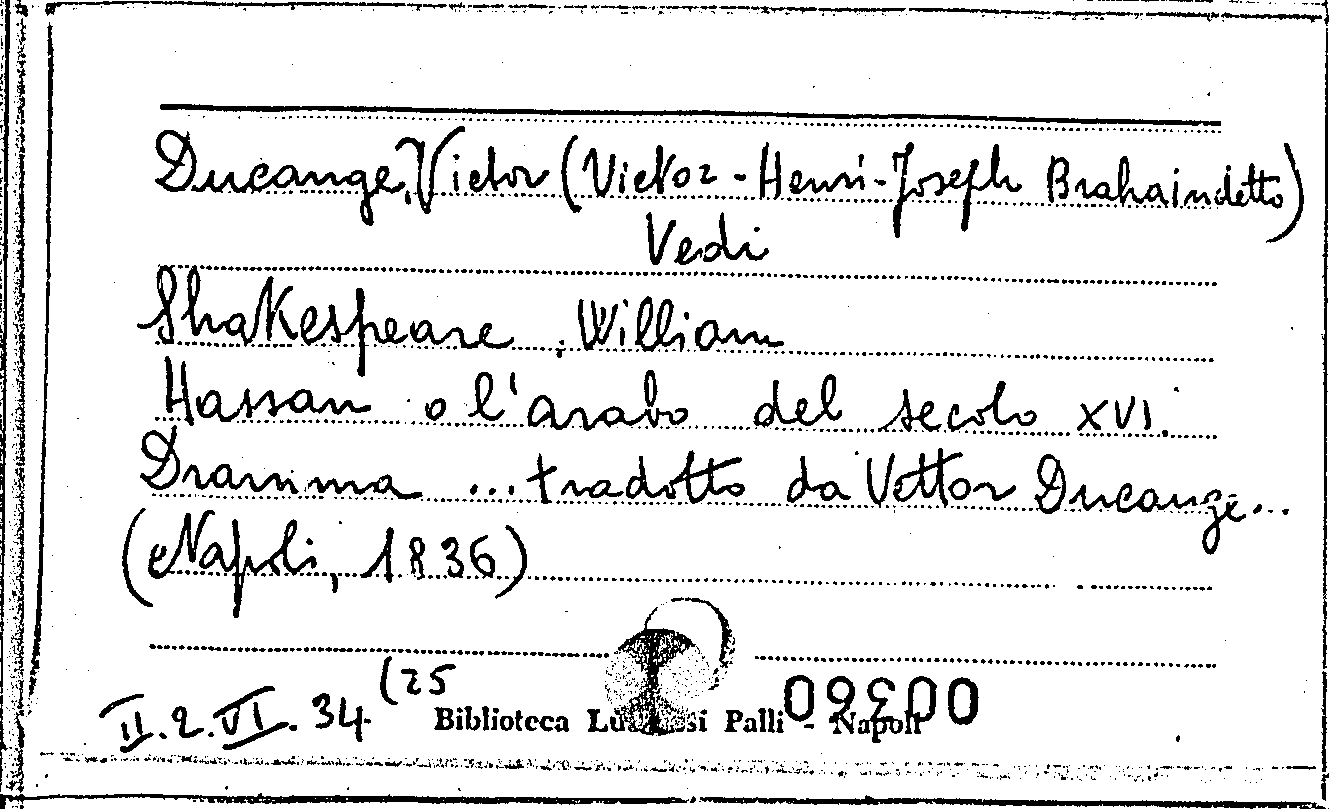 Ducange, Victor (Victor-Henri-Joseph Brahaindetto)
Vedi
Shakespeare, William
Hassan o l'arabo del secolo XVI.
Dramma ... tradotto da Vettor Ducange...
(Napoli, 1836)
II.2.VI.34 (25
Biblioteca Lucchesi Palli - Napoli